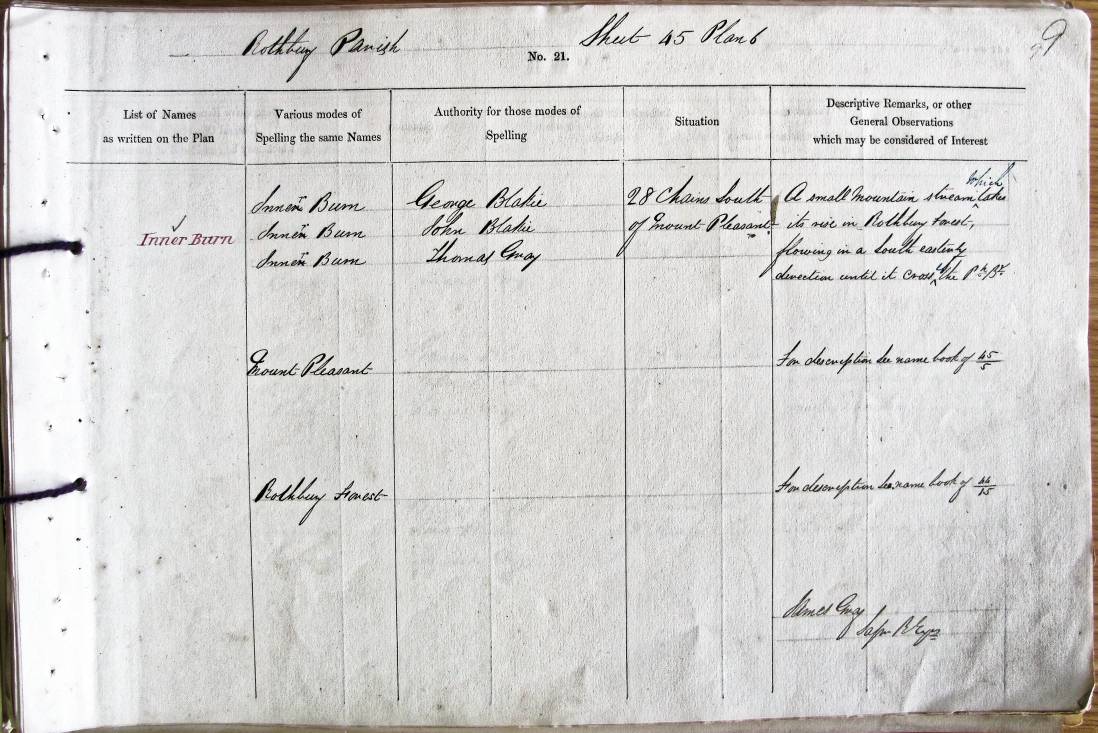 Rothbury Parish Sheet 45 Plan 6 9
No. 21.
List of Names
as written on the Plan
Various modes of
Spelling the same Names
Authority for those modes of
Spelling
Situation
Descriptive Remarks, or other
General Observations
which may be considered of Interest
Inner Burn
Inner Burn
Inner Burn
Inner Burn
George Blakie
John Blakie
Thomas Gray
28 Chains South
of Mount Pleasant
A small Mountain stream which takes
its rise in Rothbury Forest,
flowing in a South easterly
direction until it cross the Ph By
Mount Pleasant
For description see name book of 45/5
Rothbury Forest
For description see name book of 44/15
James Gray
Sapr R Engrs